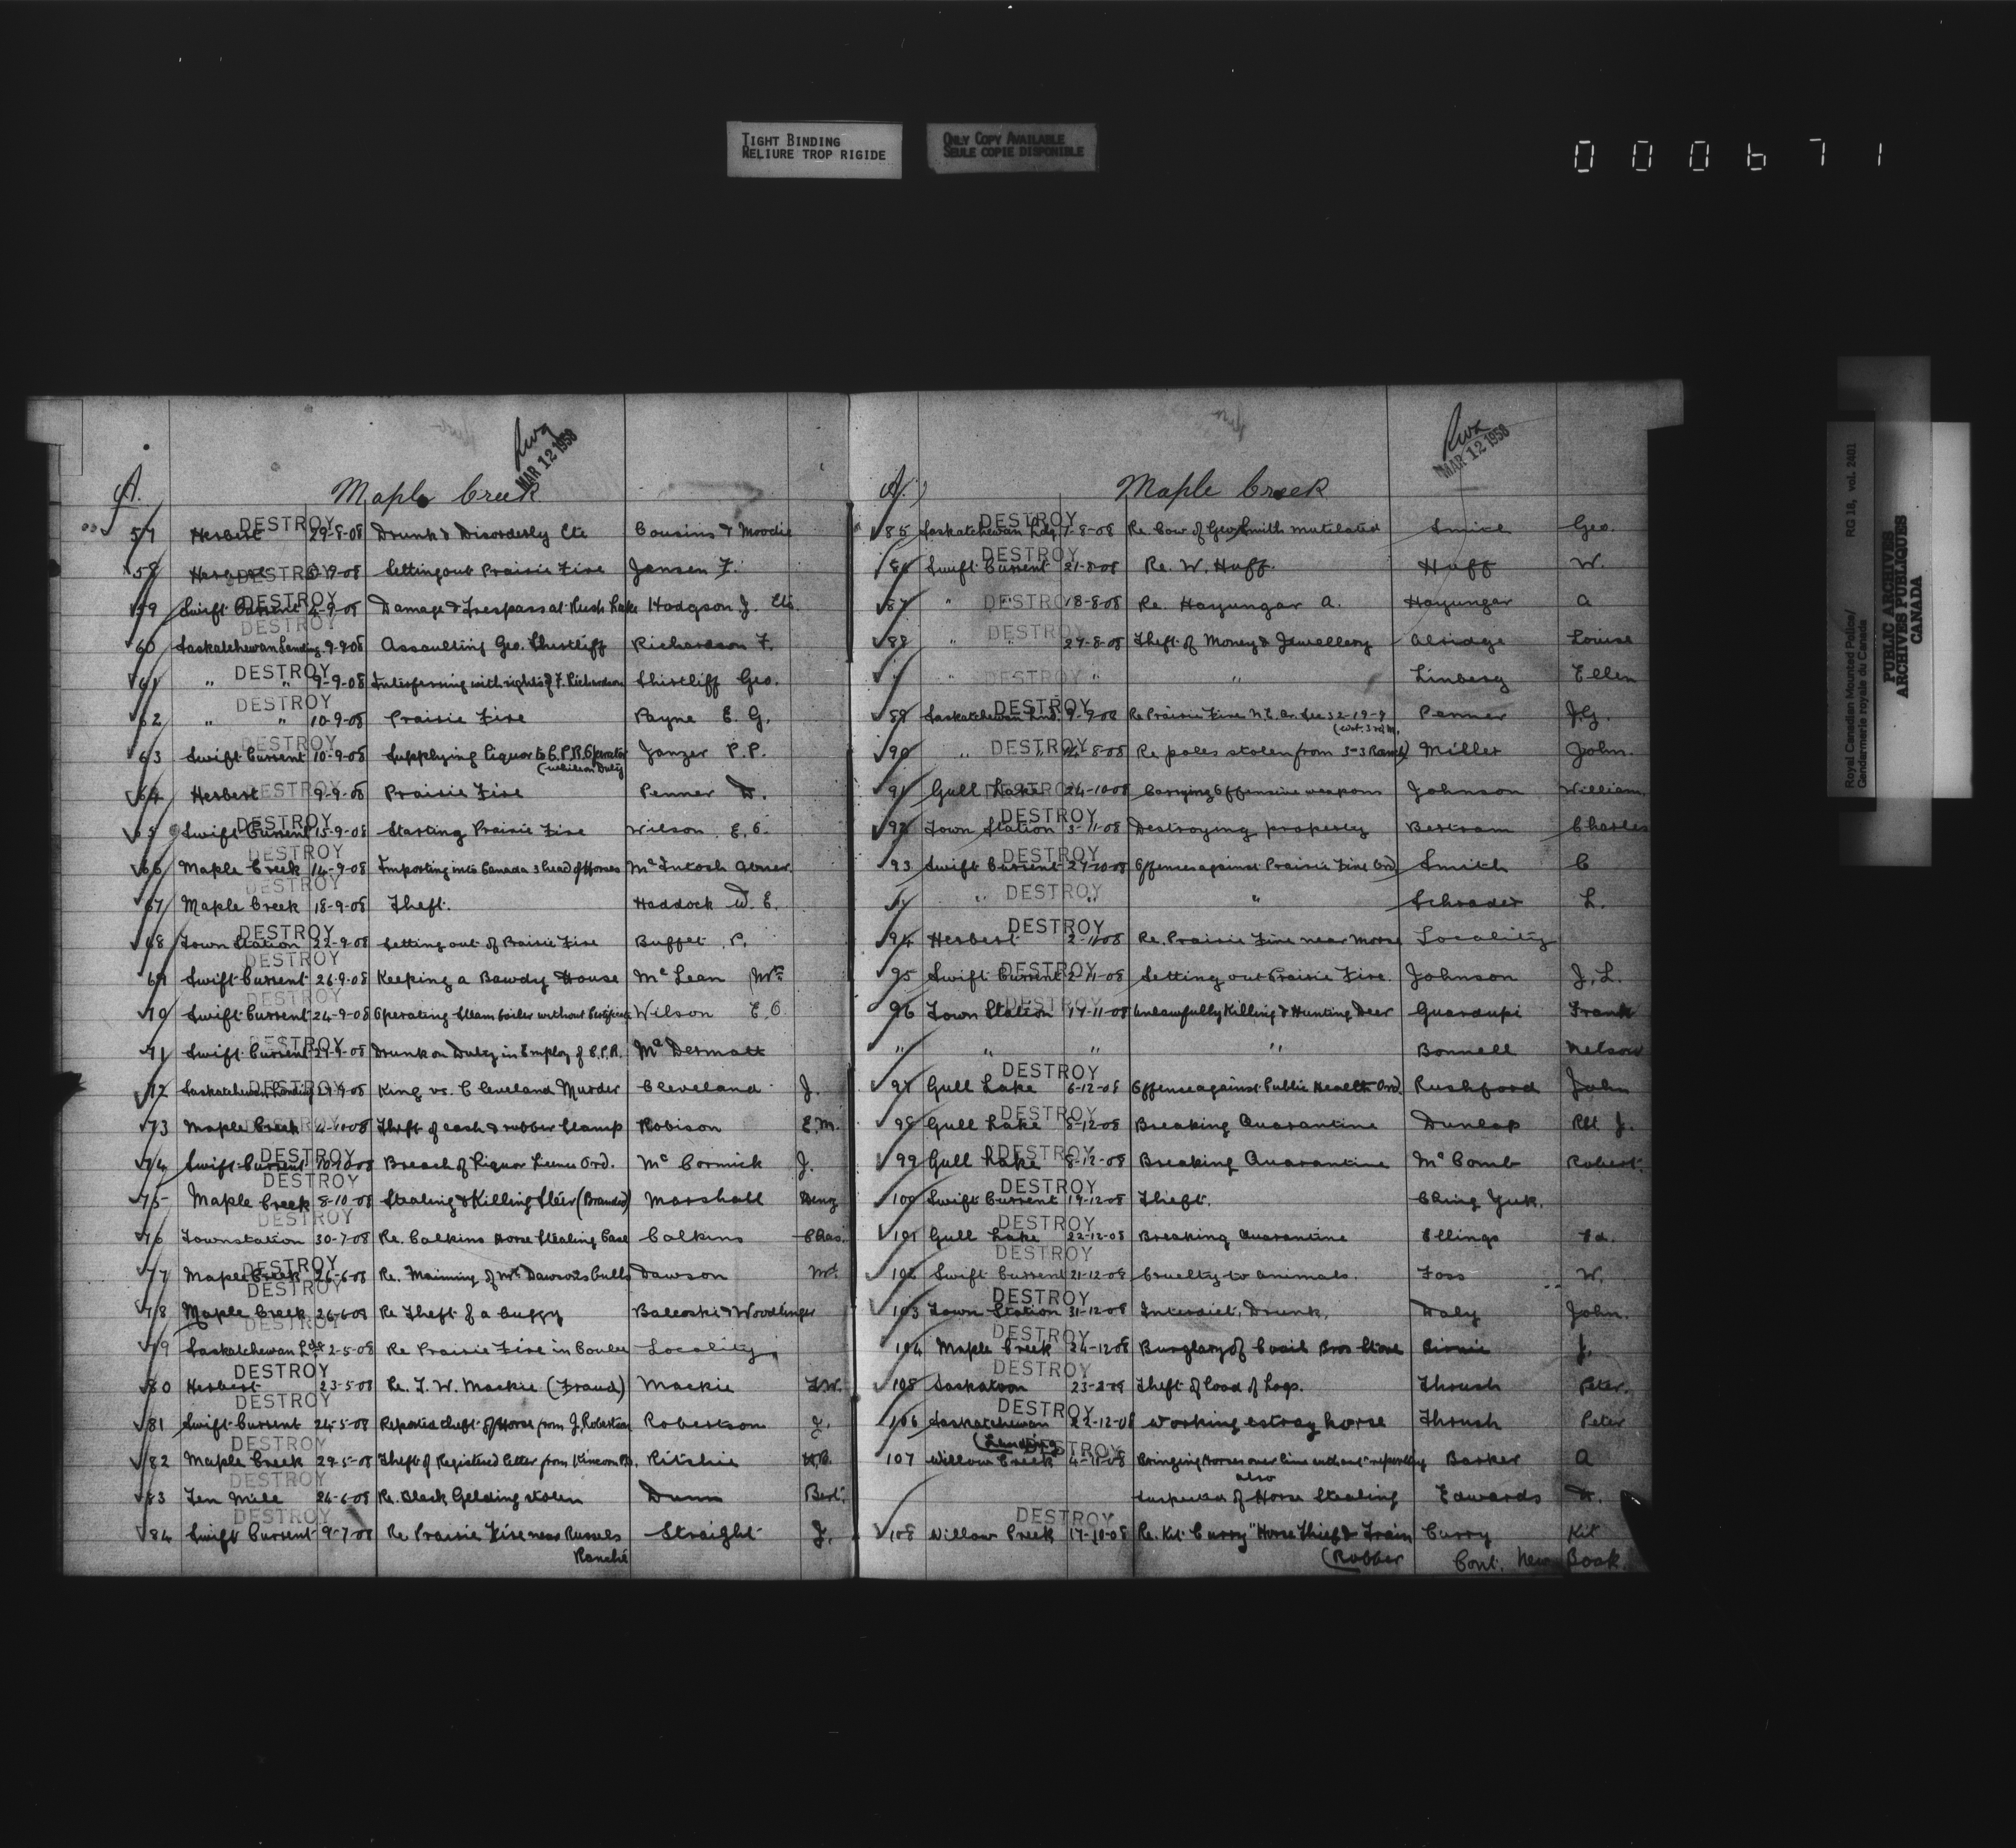 TIGHT BINDING
RELIURE TROP RIGIDE
ONLY COPY AVAILABLE
SEULE COPIE DISPONIBLE
000671
MAR 12 1958
A. Maple Creek
57 Herbert DESTROY 29-8-08 Drunk & Disorderly Etc Cousins & Moodie
58 Herbert DESTROY 5-9-08 Setting out Prairie Fire Jansen F.
59 Swift Current DESTROY 4-9-08 Damage & Trespass at Rush Lake Hodgson J. Etc.
60 Saskatchewan Landing DESTROY 9-9-08 Assaulting Geo. Shirtliff Richardson F.
61 " " DESTROY 9-9-08 Interferring with rights of F. Richardson Shirtliff Geo.
62 " " DESTROY 10-9-08 Prairie Fire Payne E. G.
63 Swift Current DESTROY 10-9-08 Supplying liquor to C.P.R. Operator Janzer P.P.
(while on Duty
64 Herbert DESTROY 9-9-08 Prairie Fire Penner D.
65 Swift Current DESTROY 15-9-08 Starting Prairie Fire Wilson. E. C.
66 Maple Creek DESTROY 14-9-08 Importing into Canada 3 head of Horses McIntosh Abner.
67 Maple Creek DESTROY 18-9-08 Theft. Haddock W. E.
68 Town Station DESTROY 22-9-08 Setting out of Prairie Fire Buffet P.
69 Swift Current DESTROY 26-9-08 Keeping a Bawdy House McLean Mrs
70 Swift Current DESTROY 24-9-08 Operating Steam boiler without Certificate Wilson E.C.
71 Swift Current DESTROY 29-9-08 Drunk on Duty in Employ of C.P.R. McDermott
72 Saskatchewan Landing DESTROY 29-9-08 King vs. C Cleveland Murder Cleveland J.
73 Maple Creek DESTROY 4-10-08 Theft of cash & rubber stamp Robison E.M.
74 Swift Current DESTROY 10-10-08 Breach of Liquor License Ord. McCormick J.
75 Maple Creek DESTROY 8-10-08 Stealing & Killing Steer (Branded) Marshall
76 Townstation DESTROY 30-7-08 Re. Calkins Horse Stealing Case Calkins Chas.
77 Maple Creek DESTROY 26-6-08 Re. Maiming of Mr Dawson's Bulls Dawson Mr.
78 Maple Creek DESTROY 26-6-08 Re Theft of a buggy Balcoski & Woodlinger
79 Saskatchewan Ldg DESTROY 2-5-08 Re Prairie Fire in Coulee Locality
80 Herbert DESTROY 23-5-08 Re. F. W. Mackie (Fraud) Mackie F.W.
81 Swift Current DESTROY 24-5-08 Reported theft of Horse from J. Robertson Robertson J.
82 Maple Creek DESTROY 29-5-08 Theft of Registered letter from Kincorn P.O. Ritchie
83 Ten Mile DESTROY 24-6-08 Re. Black Gelding stolen Dunn Bert.
84 Swift Current DESTROY 9-7-08 Re Prairie Fire near Russels Straight J.
Ranché
MAR 12 1958
A. Maple Creek
85 Saskatchewan Ldg DESTROY 7-8-08 Re. Cow of Geo Smith mutilated Smith Geo.
86 Swift Current DESTROY 21-8-08 Re. W. Huff. Huff W.
87 " DESTROY 18-8-08 Re. Hayungar A. Hayungar A
88 " DESTROY 29-8-08 Theft of Money & Jewellery Alridge Louise
" " DESTROY " " Linberg Ellen
89 Saskatchewan Lnd. DESTROY 9-9-08 Re Prairie Fire N.E. Qr. Sec 32-19-9 Penner J.G.
(West. 3rd M.
90 " DESTROY 24-8-08 Re poles stolen from 5-3 Ranch Miller John.
91 Gull Lake DESTROY 24-10-08 Carrying Offensive weapons Johnson William.
92 Town Station DESTROY 3-11-08 Destroying property Bertram Charles
93 Swift Current DESTROY 27-10-08 Offence against Prairie Fire Ord Smith C
" " DESTROY " " Schrader L.
94 Herbert DESTROY 2-11-08 Re. Prairie Fire near Morse Locality
95 Swift Current DESTROY 2-11-08 Setting out Prairie Fire. Johnson J. L.
96 Town Station DESTROY 17-11-08 Unlawfully Killing & Hunting Deer Guardupi Frank
" " " " Bonnell Nelson
97 Gull Lake DESTROY 6-12-08 Offence against Public Health Ord. Rushford John
98 Gull Lake DESTROY 8-12-08 Breaking Quarantine Dunlap Rbt J.
99 Gull Lake DESTROY 8-12-08 Breaking Quarantine McComb Robert.
100 Swift Current DESTROY 19-12-08 Theft. Ching Yuk.
101 Gull Lake DESTROY 22-12-08 Breaking Quarantine Ellings Ed.
102 Swift Current DESTROY 21-12-08 Cruelty to animals. Foss W.
103 Town Station DESTROY 31-12-08 Interdict, Drunk, Daly John.
104 Maple Creek DESTROY 24-12-08 Burglary of Bros Store Birnie J.
105 Saskatoon DESTROY 23-2-08 Theft of load of Logs. Thrush Peter.
106 Saskatchewan DESTROY 22-12-08 Working estray horse Thrush Peter
(Landing
107 Willow Creek DESTROY 4-11-08 Bringing Horses over line without reporting Barker A
also
Suspected of Horse Stealing Edwards D.
108 Willow Creek DESTROY 17-10-08 Re. Kit Curry "Horse Thief & Train Curry Kit
(Robber Cont. New Book.
Royal Canadian Mounted Police/ RG 18, vol. 2401
Gendarmerie royale du Canada
PUBLIC ARCHIVES
ARCHIVES PUBLIQUES
CANADA